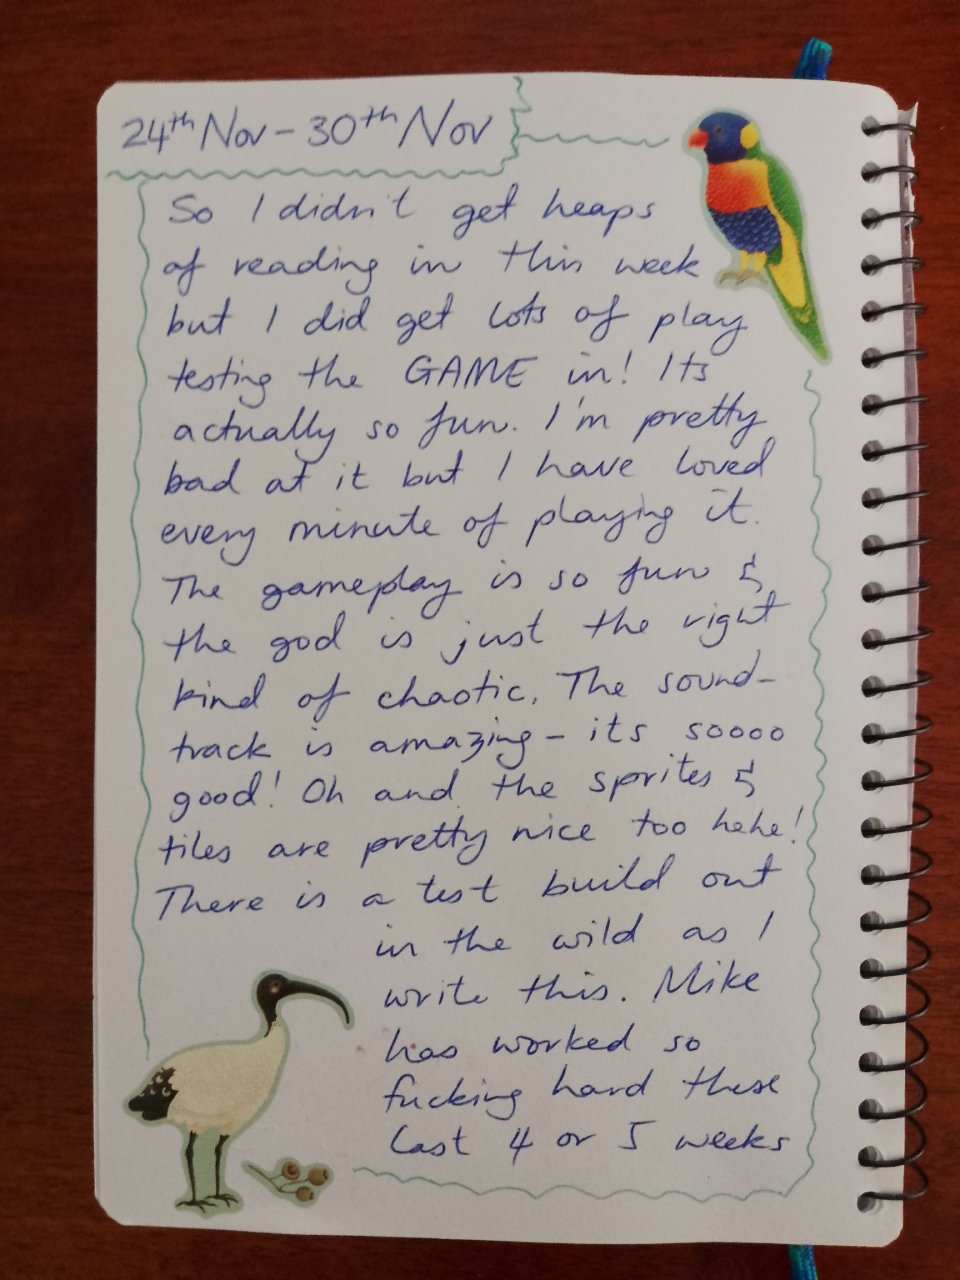 24th Nov - 30th Nov
So I didn't get heaps
of reading in this week
but I did get lots of play
testing the GAME in! Its
actually so fun. I'm pretty
bad at it but I have loved
every minute of playing it.
The gameplay is so fun &
the god is just the right
kind of chaotic. The sound-
track is amazing - its soooo
good! Oh and the sprites &
tiles are pretty nice too hehe!
There is a test build out
in the wild as I
write this. Mike
has worked so
fucking hard these
last 4 or 5 weeks